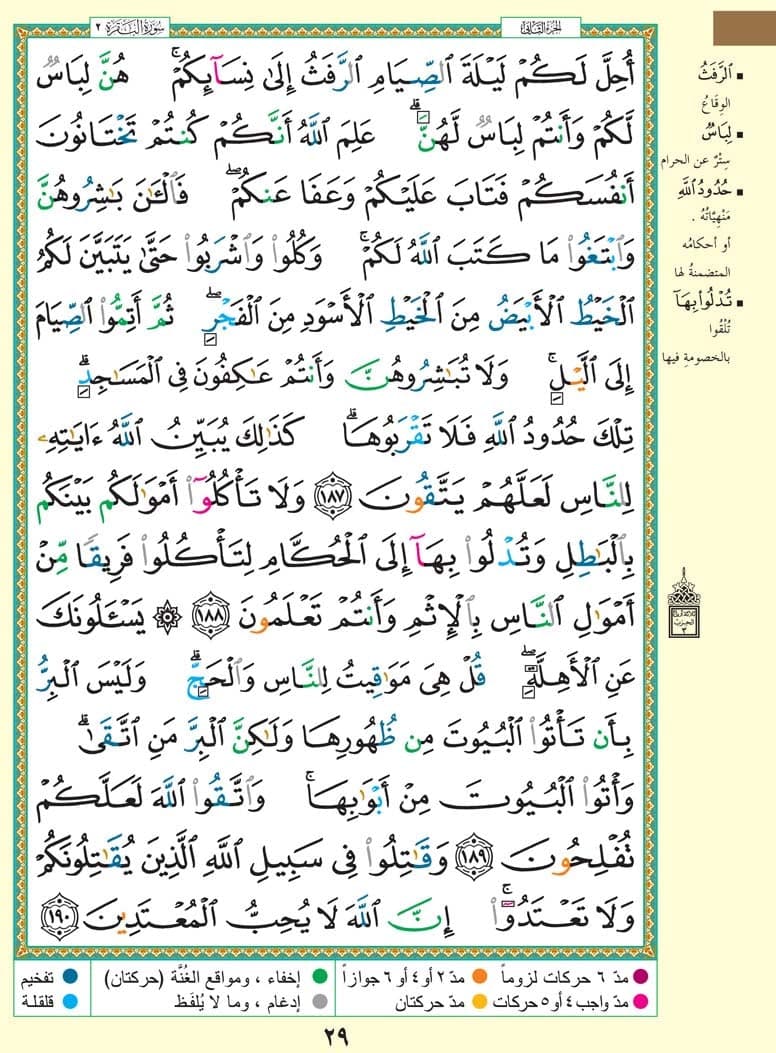 الجزء الثاني
سورة البقرة ٢
أُحِلَّ لَكُمْ لَيْلَةَ ٱلصِّيَامِ ٱلرَّفَثُ إِلَىٰ نِسَآئِكُمْ ۚ هُنَّ لِبَاسٌ
لَّكُمْ وَأَنتُمْ لِبَاسٌ لَّهُنَّ ۗ عَلِمَ ٱللَّهُ أَنَّكُمْ كُنتُمْ تَخْتَانُونَ
أَنفُسَكُمْ فَتَابَ عَلَيْكُمْ وَعَفَا عَنكُمْ ۖ فَٱلْـَٰٔنَ بَـٰشِرُوهُنَّ
وَٱبْتَغُوا۟ مَا كَتَبَ ٱللَّهُ لَكُمْ ۚ وَكُلُوا۟ وَٱشْرَبُوا۟ حَتَّىٰ يَتَبَيَّنَ لَكُمُ
ٱلْخَيْطُ ٱلْأَبْيَضُ مِنَ ٱلْخَيْطِ ٱلْأَسْوَدِ مِنَ ٱلْفَجْرِ ۖ ثُمَّ أَتِمُّوا۟ ٱلصِّيَامَ
إِلَى ٱلَّيْلِ ۚ وَلَا تُبَـٰشِرُوهُنَّ وَأَنتُمْ عَـٰكِفُونَ فِى ٱلْمَسَـٰجِدِ ۗ
تِلْكَ حُدُودُ ٱللَّهِ فَلَا تَقْرَبُوهَا ۗ كَذَٰلِكَ يُبَيِّنُ ٱللَّهُ ءَايَـٰتِهِۦ
لِلنَّاسِ لَعَلَّهُمْ يَتَّقُونَ ١٨٧ وَلَا تَأْكُلُوٓا۟ أَمْوَٰلَكُم بَيْنَكُم
بِٱلْبَـٰطِلِ وَتُدْلُوا۟ بِهَآ إِلَى ٱلْحُكَّامِ لِتَأْكُلُوا۟ فَرِيقًا مِّنْ
أَمْوَٰلِ ٱلنَّاسِ بِٱلْإِثْمِ وَأَنتُمْ تَعْلَمُونَ ١٨٨ ۞ يَسْـَٔلُونَكَ
عَنِ ٱلْأَهِلَّةِ ۖ قُلْ هِىَ مَوَٰقِيتُ لِلنَّاسِ وَٱلْحَجِّ ۗ وَلَيْسَ ٱلْبِرُّ
بِأَن تَأْتُوا۟ ٱلْبُيُوتَ مِن ظُهُورِهَا وَلَـٰكِنَّ ٱلْبِرَّ مَنِ ٱتَّقَىٰ ۗ
وَأْتُوا۟ ٱلْبُيُوتَ مِنْ أَبْوَٰبِهَا ۚ وَٱتَّقُوا۟ ٱللَّهَ لَعَلَّكُمْ
تُفْلِحُونَ ١٨٩ وَقَـٰتِلُوا۟ فِى سَبِيلِ ٱللَّهِ ٱلَّذِينَ يُقَـٰتِلُونَكُمْ
وَلَا تَعْتَدُوٓا۟ ۚ إِنَّ ٱللَّهَ لَا يُحِبُّ ٱلْمُعْتَدِينَ ١٩٠
▪ ٱلرَّفَثُ
الوِقَاعُ
▪ لِبَاسٌ
سِتْرٌ عن الحرام
▪ حُدُودُ ٱللَّهِ
مَنْهِيَّاتُهُ .
أو أحكامُه
المتضمنةُ لها
▪ تُدْلُوا۟ بِهَآ
تُلْقُوا
بالخصومةِ فيها
ثلاثة أرباع
الحزب
٣
مدّ ٦ حركات لزوماً
مدّ ٢ أو ٤ أو ٦ جوازاً
إخفاء ، ومواقع الغُنَّة (حركتان)
تفخيم
مدّ واجب ٤ أو ٥ حركات
مدّ حركتان
إدغام ، وما لا يُلفَظ
قلقلة
٢٩